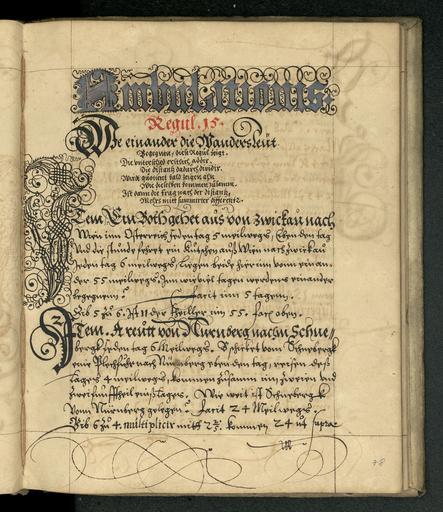 Ambulationis
Regul. 15.
Wie einander die Wandersleut
Begegnen, diese Regul zeigt.
Die unterschied erstlich addir.
Die distantz dadurch dividir.
Wird quotient bald zeigen ahn
Wie dieselben kommen zusamm.
Ist dann die frag nach der distantz,
Meers mitt summirter differentz.
Item Ein Both gehet aus von Zwickau nach
Wien inn Österreich jeden tag 5 meilwegs, Eben den tag
Und die stunde fehret ein Kutschen auß Wien nach Zwickau
jeden tag 6 meilwegs, liegen beide hierinn von einan-
der 55 meilwegs. Inn wie viel tagen werdens einander
begegnenn? Facit inn 5 tagenn.
Gib 5 zu 6. Ist 11 der theiller inn 55. fac oben.
Item. A reitt von Nürnberg nachm Schnee/
bergk jeden tag 6 Meilwegs. B fehret vom Schneebergk
ein Blechfuhr nach Nürnberg eben den tag, reisen deß
Tages 4 meilwegs, kommen zusamm im zweien und
zwei funfftheil eins Tages. Wie weit ist Schnebergk
Vonn Nürnberg gelegen? Facit 24 Meilwegs.
Gib 6 zu 4. multiplicir mitt 2⅖. kommen 24 ut supra
78